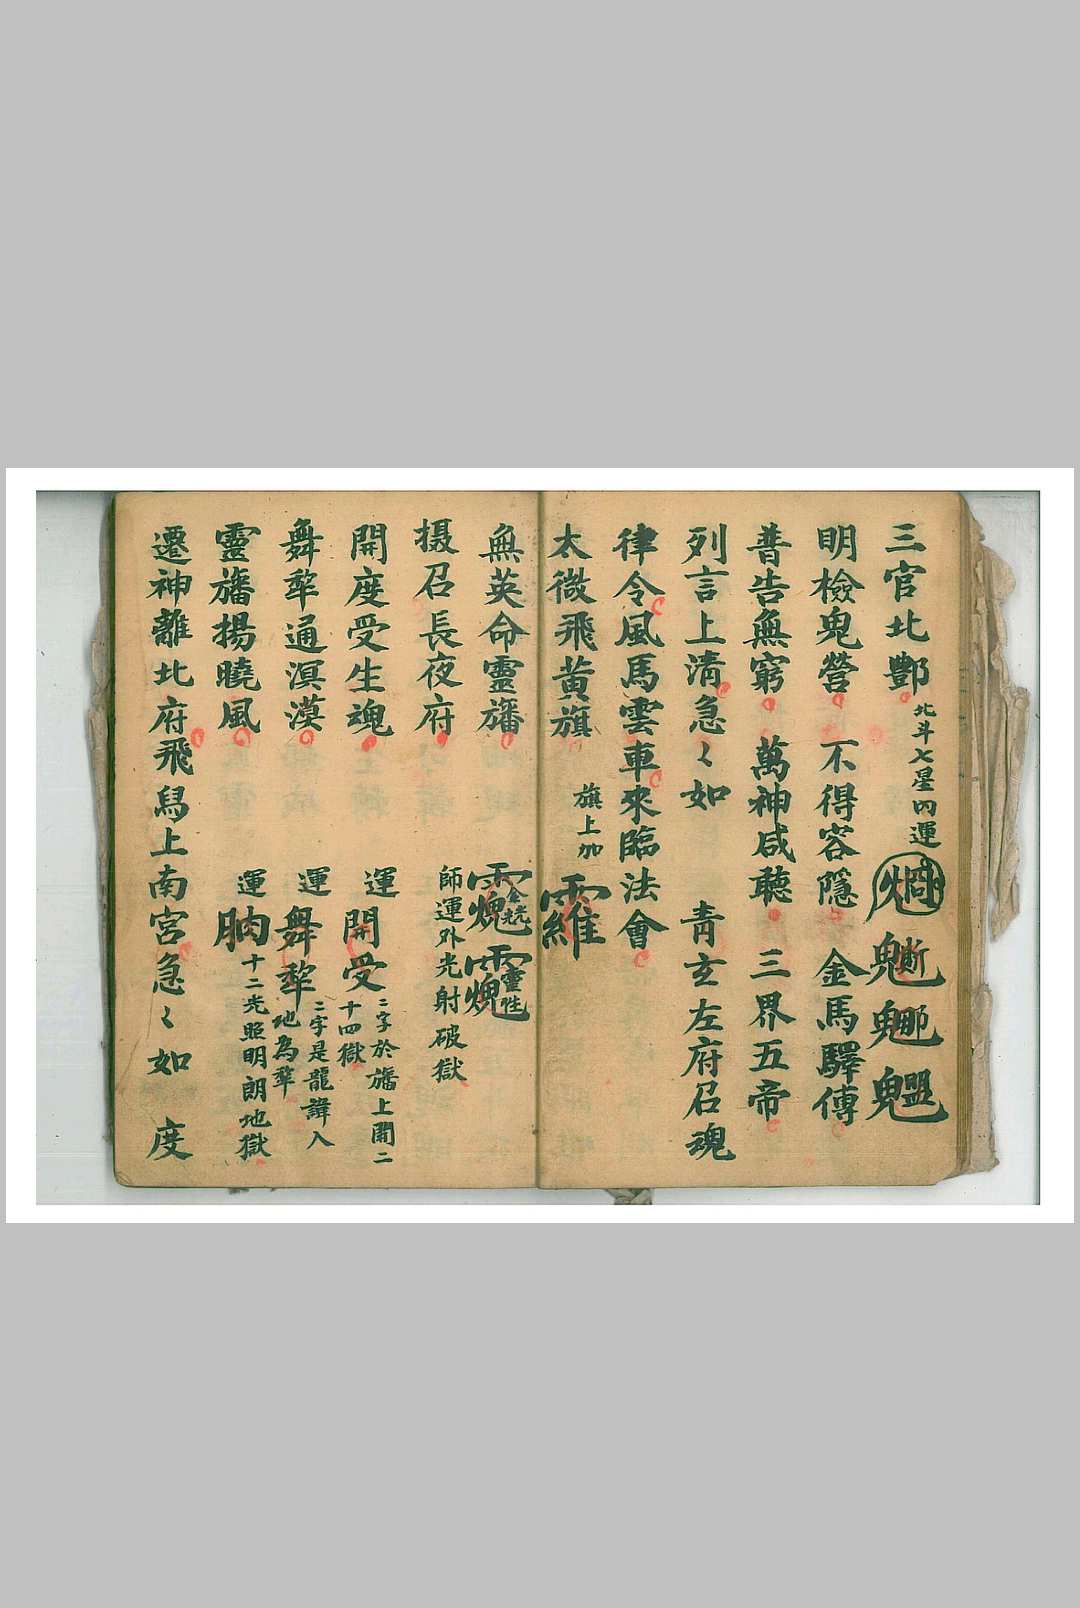 三官北酆 北斗七星內運
明檢鬼營 不得容隱 金馬驛傳
普告無窮 萬神咸聽 三界五帝
列言上清急々如 青玄左府召魂
律令風馬雲車來臨法會
太微飛黃旗 旗上加
無英命靈旛
攝召長夜府 師運外光射破獄
開度受生魂 運開受 二字於旛上開二十四獄
舞犂通溟漠 運舞犂 二字是龍諱入地為犂
靈旛揚曉風 運朒 十二光照明朗地獄
遷神離北府飛舄上南宮急々如 度